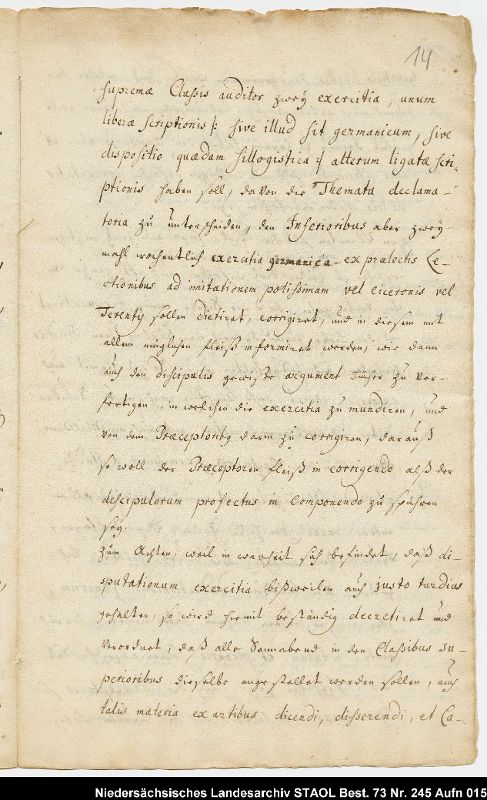 14
supremæ Classis auditor zweÿ exercitia, unum
liberæ scriptionis |: sive illud sit germanicum, sive
dispositio quædam sillogistica :| alterum ligatæ scri-
ptionis haben soll, davon die Themata declama-
toria zu unterscheiden, den Inferioribus aber zweÿ-
mahl wochentlich exercitia germanica ex prælectis Le-
ctionibus ad imitationem potissimam vel Ciceronis vel
Terentÿ sollen dictiret, corrigiret, und in diesem mit
allem möglichen fleiß informiret werden, wie dann
auch den discipulis gewisse argument bücher zu ver-
fertigen, in welchen die exercitia zu mundiren, und
von dem Præceptoribg darin zu corrigiren, darauß
so woll der Præceptoren fleiß in corrigendo alß der
discipulorum profectus in Componendo zu spühren
seÿ.
Zum Achten, weil in warheit sich befindet, daß di-
sputationum exercitia bißweilen auch justo tardius
gehalten, so wird hiermit beständig decretiret und
verordnet, daß alle Sonnabend in den Classibus su-
perioribus dieselbe angestellet werden sollen, auch
talis materia ex artibus dicendi, disserendi, et Ca-
Niedersächsisches Landesarchiv STAOL Best. 73 Nr. 245 Aufn 015